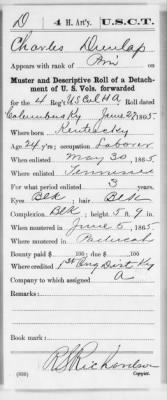 D 4 H. Art'y. U.S.C.T.
Charles Dunlap
Appears with rank of Pri on
Muster and Descriptive Roll of a Detach-
ment of U. S. Vols. forwarded
for the 4 Reg't US Col HA Roll dated
Columbus Ky June 27, 1865.
Where born Kentucky
Age 24 y'rs; occupation Laborer
When enlisted May 30, 1865
Where enlisted
For what period enlisted 3 years.
Eyes Blk; hair Blk
Complexion Blk; height 5 ft. 9 in.
When mustered in June 5, 1865
Where mustered in Paducah
Bounty paid $ 100; due $ 100
Where credited 1st Cong Dist Ky
Company to which assigned A
Remarks:
Book mark:
R S Richardson
(330) Copyist.